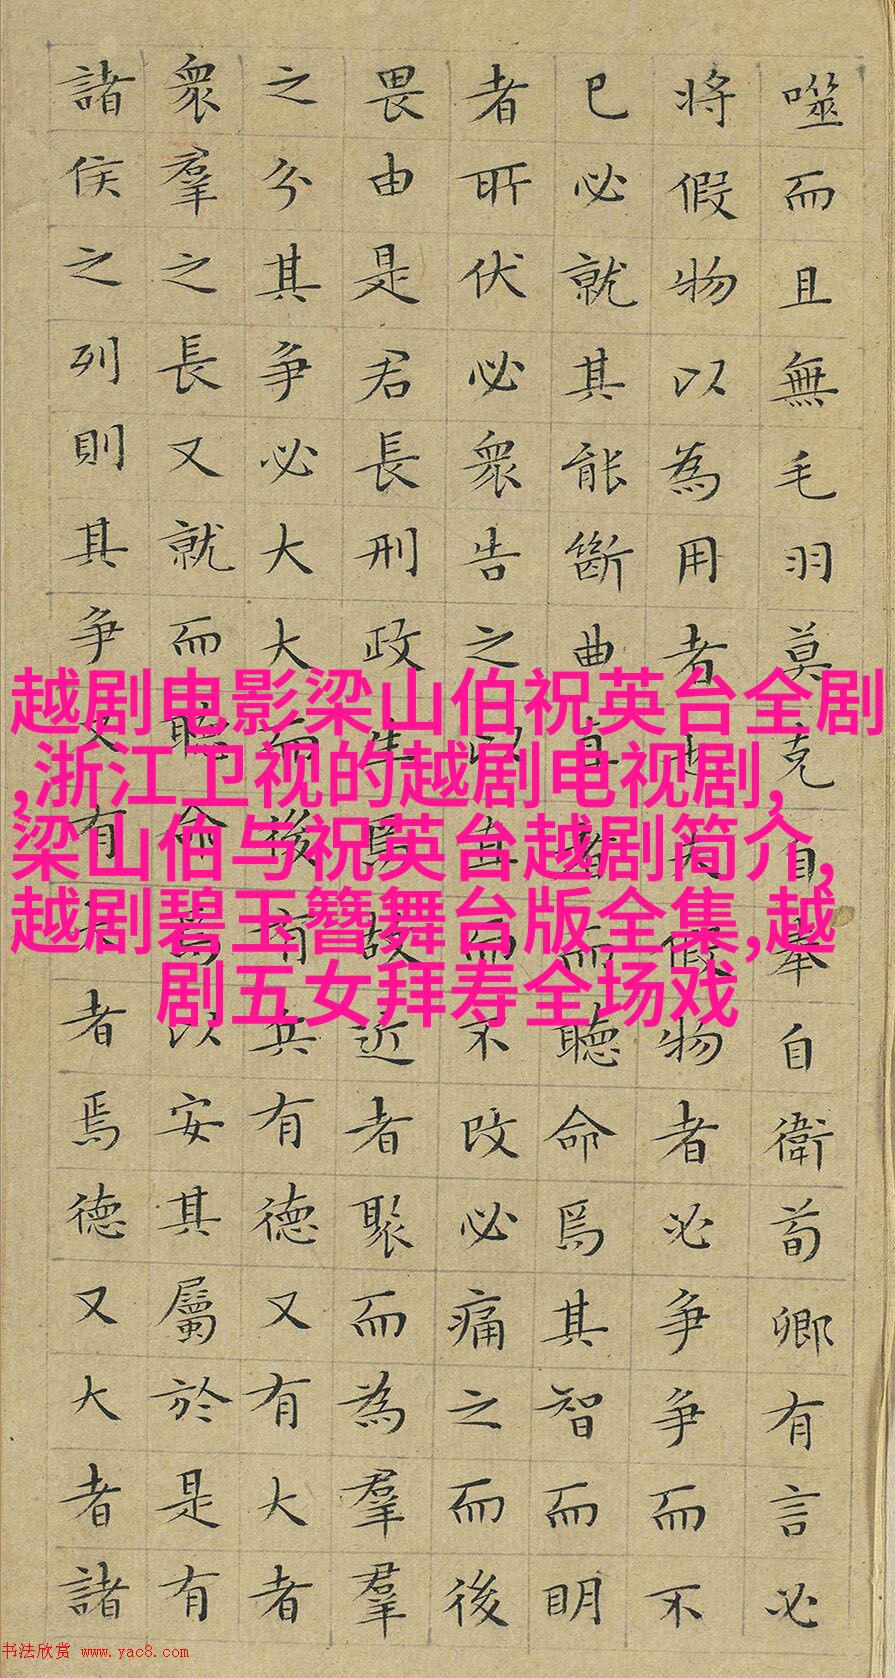 噬而且無毛羽莫克自奉自衛荀卿有言必
將假物以為用者也夫假物者必争争而不
已必就其能斷曲直者而聽命焉其智而明
者所伏必衆告之以直而不改必痛之而後
畏由是君長刑政生焉故近者聚而為羣羣
之分其争必大大而後有兵有德又有大者
衆羣之長又就而聽命焉以安其屬於是有
諸侯之列則其争又有大者焉德又大者諸
越剧电影梁山伯祝英台全剧
,浙江卫视的越剧电视剧,
梁山伯与祝英台越剧简介,
越剧碧玉簪舞台版全集,越
剧五女拜寿全场戏
书法欣赏 www.yac8.com